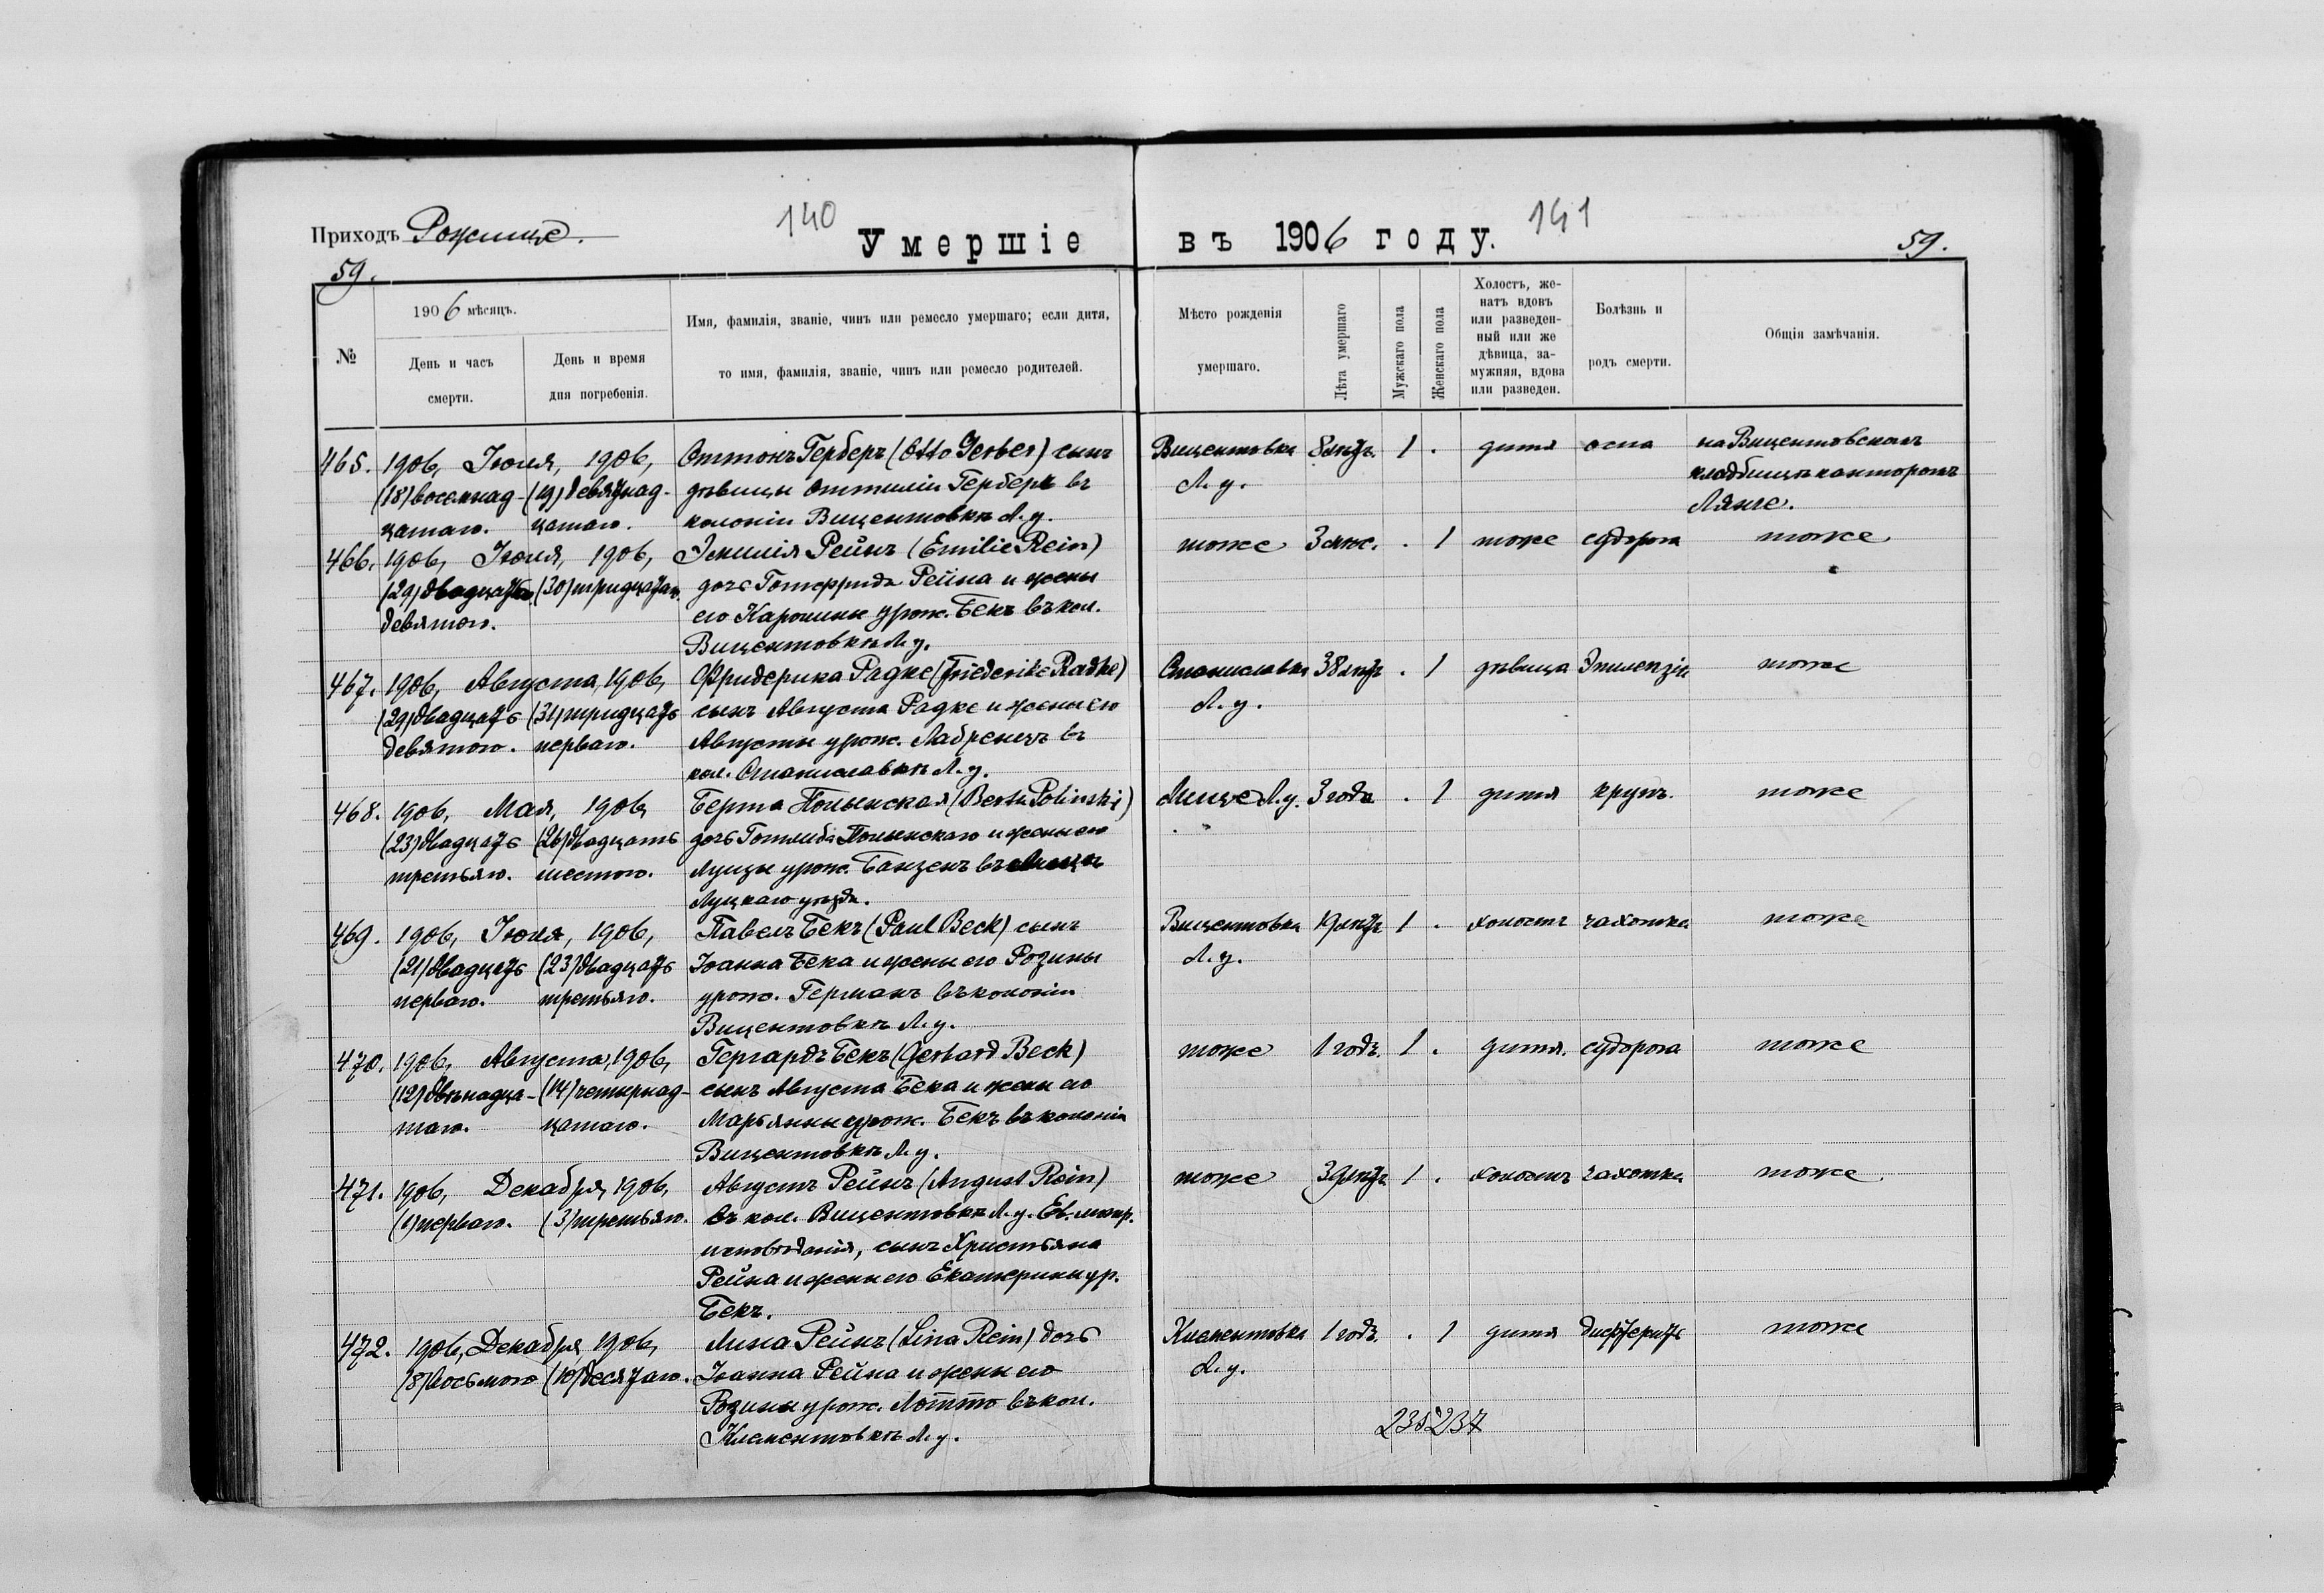 140
141
Приходъ Рожище.
Умершіе
въ 1906 году.
59.
59.
№
1906 мѣсяцъ.
День и часъ
смерти.
День и время
дня погребенія.
Имя, фамилія, званіе, чинъ или ремесло умершаго; если дитя,
то имя, фамилія, званіе, чинъ или ремесло родителей.
Мѣсто рожденія
умершаго.
Лѣта умершаго
Мужскаго пола
Женскаго пола
Холостъ, же-
натъ вдовъ
или разведен-
ный или же
дѣвица, за-
мужняя, вдова
или разведен.
Болѣзнь и
родъ смерти.
Общія замѣчанія.
465. 1906, Іюля, 1906, Оттонъ Герберъ (Otto Gerber) сынъ Вицентовка 8 лѣтъ. 1 . дитя оспа на Вицентовскомъ
(18) восемнад- (19) девятнад- дѣвицы Оттиліи Герберъ въ Л. у. кладбищѣ канторомъ
цатаго. цатаго. колоніи Вицентовкѣ Л. у. Лянге.
466. 1906, Іюля, 1906, Эмилія Рейнъ (Emilie Rein) тоже 3 мѣс. . 1 тоже судорога тоже
(29) двадцать (30) тридцатаго. дочь Готфрида Рейна и жены
девятого. его Каролины урож. Бекъ въ кол.
Вицентовкѣ Л. у.
467. 1906, Августа, 1906, Фридерика Радке (Friederike Radke) Станиславка 38 лѣтъ . 1 дѣвица Эпилепзія тоже
(29) двадцать (31) тридцать сынъ Августа Радке и жены его Л. у.
девятого. перваго. Августы урож. Лабренцъ въ
кол. Станиславкѣ Л. у.
468. 1906, Мая, 1906, Берта Полинская (Berta Polinski) Лище Л. у. 3 года . 1 дитя крупъ. тоже
(23) двадцать (26) двадцать дочь Готлиба Полинскаго и жены его
третьяго. шестого. Луизы урож. Банзенъ въ
Луцкаго уѣзда.
469. 1906, Іюля, 1906, Павелъ Бекъ (Paul Beck) сынъ Вицентовка 19 лѣтъ 1 . холостъ чахотка тоже
(21) двадцать (23) двадцать Іоанна Бека и жены его Розины Л. у.
перваго. третьяго. урож. Германъ въ колоніи
Вицентовкѣ Л. у.
470. 1906, Августа, 1906, Гергардъ Бекъ (Gerhard Beck) тоже 1 годъ. 1 . дитя. судорога тоже
(12) двѣнадца- (14) четырнад- сынъ Августа Бека и жены его
таго. цатаго. Марьянны урож. Бекъ въ колоніи
Вицентовкѣ Л. у.
471. 1906, Декабря, 1906, Августъ Рейнъ (August Rein) тоже 39 лѣтъ 1 . холостъ чахотка тоже
(1) перваго. (3) третьяго. въ кол. Вицентовкѣ Л. у. Ев. лютер.
исповѣданія, сынъ Христьяна
Рейна и жены его Екатерины ур.
Бекъ.
472. 1906, Декабря, 1906, Лина Рейнъ (Lina Rein) дочь Климентовка 1 годъ. . 1 дитя дифтеритъ тоже
(8) восьмого (10) десятаго. Іоанна Рейна и жены его Л. у.
Розины урож. Лотто въ кол.
Климентовкѣ Л. у.
235 237